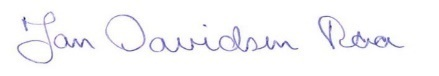 Jan Davidsen Raa